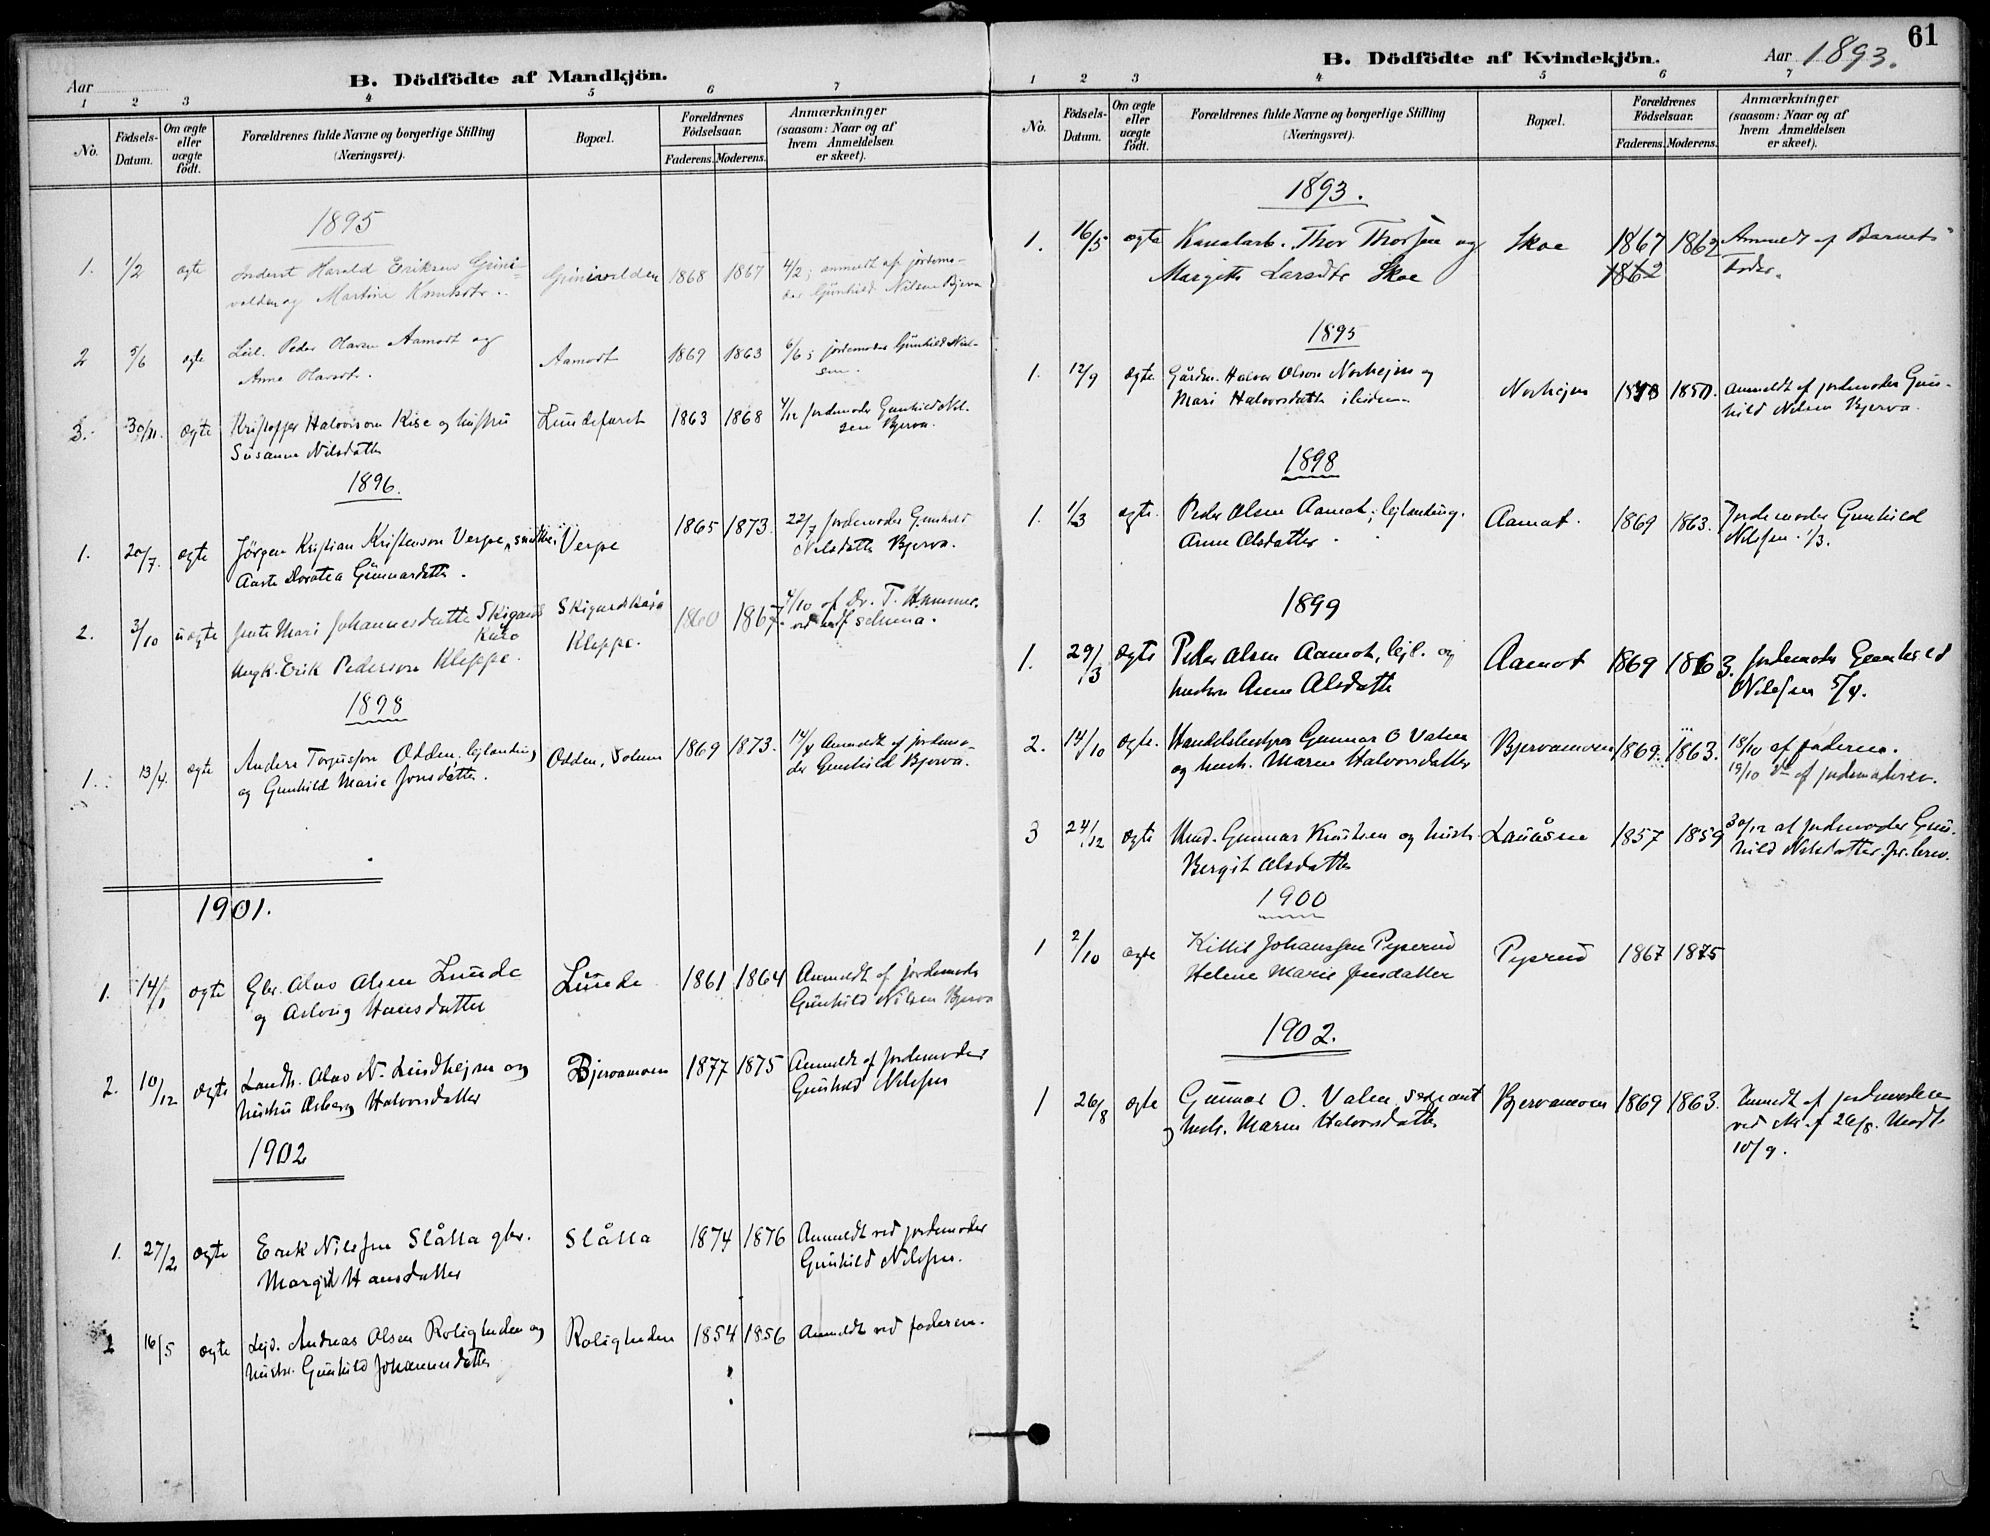 Aar
B. Dödfödte af Mandkjön.
1 2 3 4 5 6 7
No.
Födsels-Datum.
Om ægte eller uægte födt.
Forældrenes fulde Navne og borgerlige Stilling (Næringsvei).
Bopæl.
Forældrenes Födselsaar.
Faderens. Moderens.
Anmærkninger (saasom: Naar og af hvem Anmeldelsen er skeet).
1895
1. 1/2 ægte Inderst Harald Eriksen Grini- Grinivolden 1868 1867 4/2; anmeldt af jordemo-
volden og Martine Knutsdtr. der Gunhild Nilsen Bjerva
2 5/6 ægte Leil. Peder Olavsen Aamodt og Aamodt 1869 1863 6/6; jordemoder Gunhild Niel-
Anne Olavsdtr. sen.
3. 30/11 ægte Kristoffer Halvorson Kise og hustru Lundefaret 1863 1868 4/12 jordemoder Gunhild Niel-
Susanne Nilsdatter sen Bjerva.
1896.
1. 20/7. ægte Jörgen Kristian Kristenson Verpe, Verpe 1865 1873. 22/7 jordemoder Gunhild
Aaste Dorotea Gunnarsdatter. Nilsdatter Bjerva.
2. 3/10 uægte Jente Mari Johannesdatter Skigards Skigardskaso 1860 1867. 4/10 af Dr. T. Hammer.
Kaso
Ungk. Erik Pederson Kleppe. Kleppe. schema.
1898
1. 13/4. ægte Anders Torgusson Odden, lejlending Odden, Solum 1869 1873. 14/4 Anmeldt af jordemo-
og Gunhild Marie Jonsdatter. der Gunhild Bjerva.
1901.
1. 14/1 ægte Gbr. Olav Olsen Lunde Lunde 1861 1864 Anmeldt af jordemoder
og Aslaug Hansdatter Gunhild Nilsen Bjerva
2. 10/12 ægte Landh. Olav N. Lindhejm og Bjervamoen 1877 1875 Anmeldt af jordemoder
hustru Asberg Halvorsdatter Gunhild Nilsen
1902
1. 27/2 ægte Erik Nilssen Slåtta gbr. Slåtta 1874 1876 Anmeldt ved jordemoder
Margit Hansdatter Gunhild Nilssen.
2 16/5 ægte Lejd. Andreas Olsen Roligheden og Roligheden 1854 1856 Anmeldt ved faderen.
hustr. Gunhild Johannesdatter
61
B. Dödfödte af Kvindekjön.
Aar 1893.
1 2 3 4 5 6 7
No.
Födsels-Datum.
Om ægte eller uægte födt.
Forældrenes fulde Navne og borgerlige Stilling (Næringsvei).
Bopæl.
Forældrenes Födselsaar.
Faderens. Moderens.
Anmærkninger (saasom: Naar og af hvem Anmeldelsen er skeet).
1893.
1. 16/5 ægte Kanalarb. Thor Thorsen og Skoe 1867 1862 Anmeldt af Barnets
Margith Larsdtr Skoe 1862 Fader.
1895
1. 12/9 ægte. Gårdbr. Halvor Olson Norhejm og Norhejm 1850. anmeldt af jordemoder Gun-
Mari Halvorsdatter hild Nilsen Bjerva.
1898
1. 1/3 ægte. Peder Olsen Aamot, lejlending. Aamot. 1869 1863. Jordemoder Gunhild
Anne Olsdatter. Nilssen. 1/3.
1899
1. 29/3 ægte Peder Olsen Aamot, lejl. og Aamot 1869 1863. jordemoder Gunhild
hustru Anne Olsdatter Nilssen 5/4.
2. 14/10 ægte. Handelsbestyrer Gunnar O Valen Bjervamoen 1869. 1863. 18/10 af faderen.
og hustr. Maren Halvorsdatter 19/10 af jordemoderen.
3 24/12 ægte Gunnar Knutsen og hustr. Lauåsen 1857 1859 30/12 af jordemoder Gun-
Bergit Olsdatter hild Nilsdatter pr. brev.
1900
1 2/10 ægte Kittil Johanssen Pyserud Pyserud 1867 1875
Helene Marie Jensdatter
1902.
1 26/8 ægte Gunnar O. Valen, sergeant Bjervamoen 1869 1863. Anmeldt af jordmoderen
og hustr. Maren Halvorsdatter ved af 26/8. Modt.
10/9.